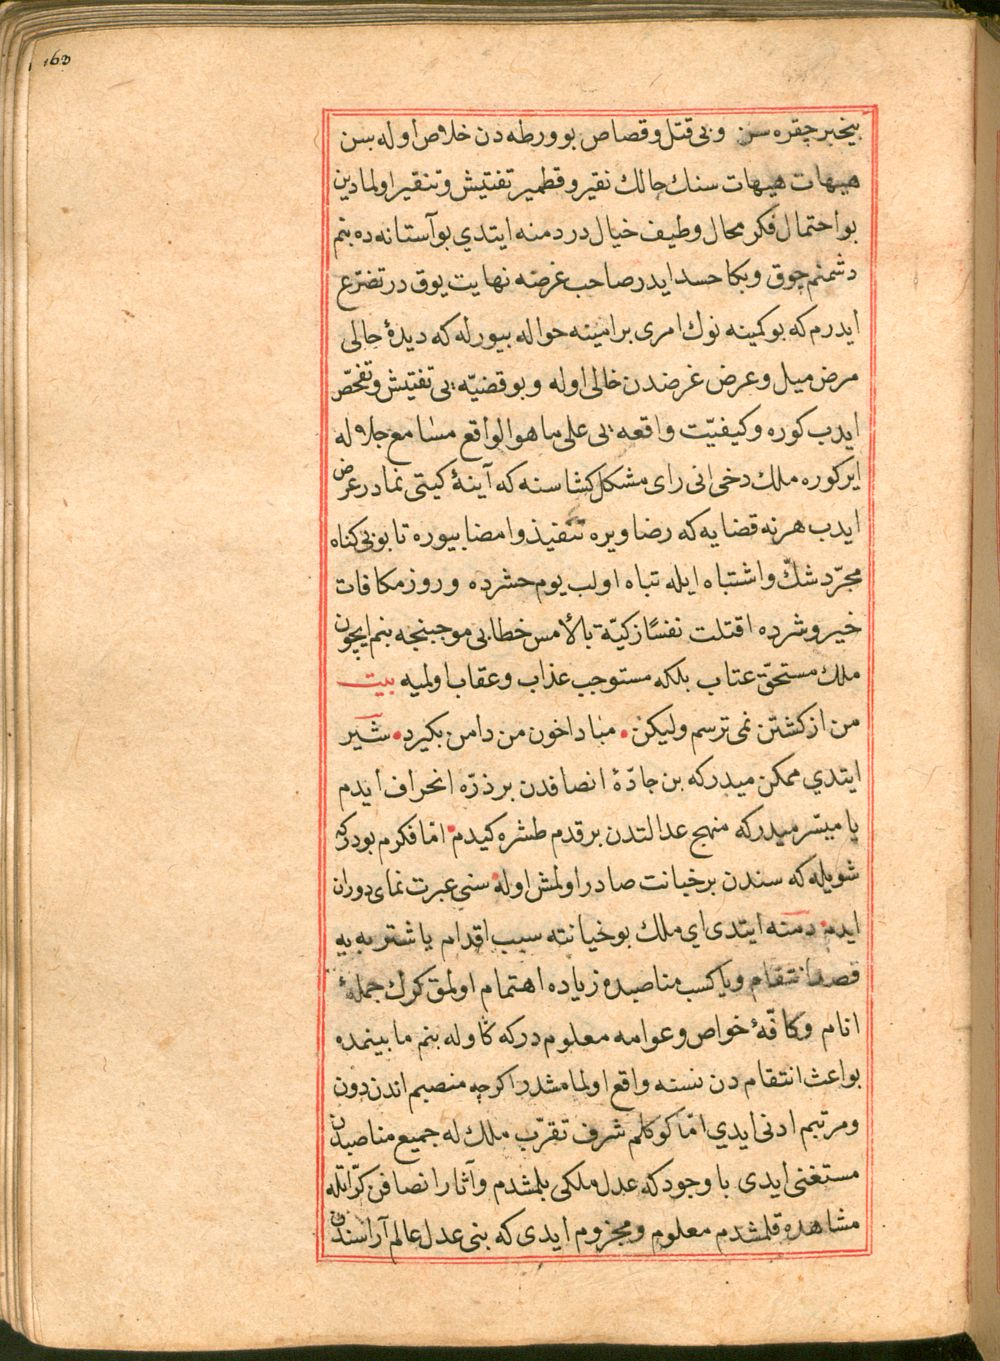 160
بيخبر چقره سن و بی قتل و قصاص بو ورطه دن خلاص اوله سن
هيهات هيهات سنك حالك نقير و قطمير تفتيش و تنقير اولمادين
بو احتمال فكر محال و طيف خيال در دمنه ايتدي بو آستانه ده بنم
دشمنم چوق و بكا حسد ايدر صاحب غرضه نهايت يوق در تضرّع
ايدرم كه بو كمينه نوك امری بر امينه حواله بيورله كه ديدۀ حالی
مرض ميل و عرض غرضدن خالی اوله و بو قضيّه يی تفتيش و تفحّص
ايدب كوره و كيفيّت واقعه يی علی ما هو الواقع مسامع جلاله
ايركوره ملك دخی انی رای مشكل كشاسنه كه آينۀ كيتی نمادر عرض
ايدب هر نه قضايه كه رضا ويره تنفيذ و امضا بيوره تا بو بی كناه
مجرّد شكّ و اشتباه ايله تباه اولب يوم حشرده و روز مكافات
خير و شرده اقتلت نفسًا زكيّة بالأمس خطابی موجبنجه بنم ايچون
ملك مستحقّ عتاب بلكه مستوجب عذاب و عقاب اولميه بيت
من از كشتن نمی ترسم وليكن • مبادا خون من دامن بكيرد • شير
ايتدي ممكن ميدر كه بن جادّۀ انصافدن بر ذرّه انحراف ايدم
يا ميسّر ميدر كه منهج عدالتدن بر قدم طشره كيدم • امّا فكرم بودر كه
شويله كه سندن بر خيانت صادر اولمش اوله • سنی عبرت نمای دوران
ايدم • دمنه ايتدی ای ملك بو خيانته سبب اقدام يا شتربه يه
قصد انتقام و يا كسب مناصبده زياده اهتمام اولمق كرك جملۀ
انام و كافّۀ خواص و عوامه معلوم در كه كاوله بنم مابينمده
بواعث انتقام دن نسنه واقع اولمامشدر اكرچه منصبم اندن دون
و مرتبم ادنی ايدي امّا كوكلم شرف تقرّب ملك له جميع مناصبدن
مستغنی ايدی با وجود كه عدل ملكی بلمشدم و آثار انصافن كرّاتله
مشاهده قلمشدم معلوم و مجزوم ايدی كه بنی عدل عالم آراسندن